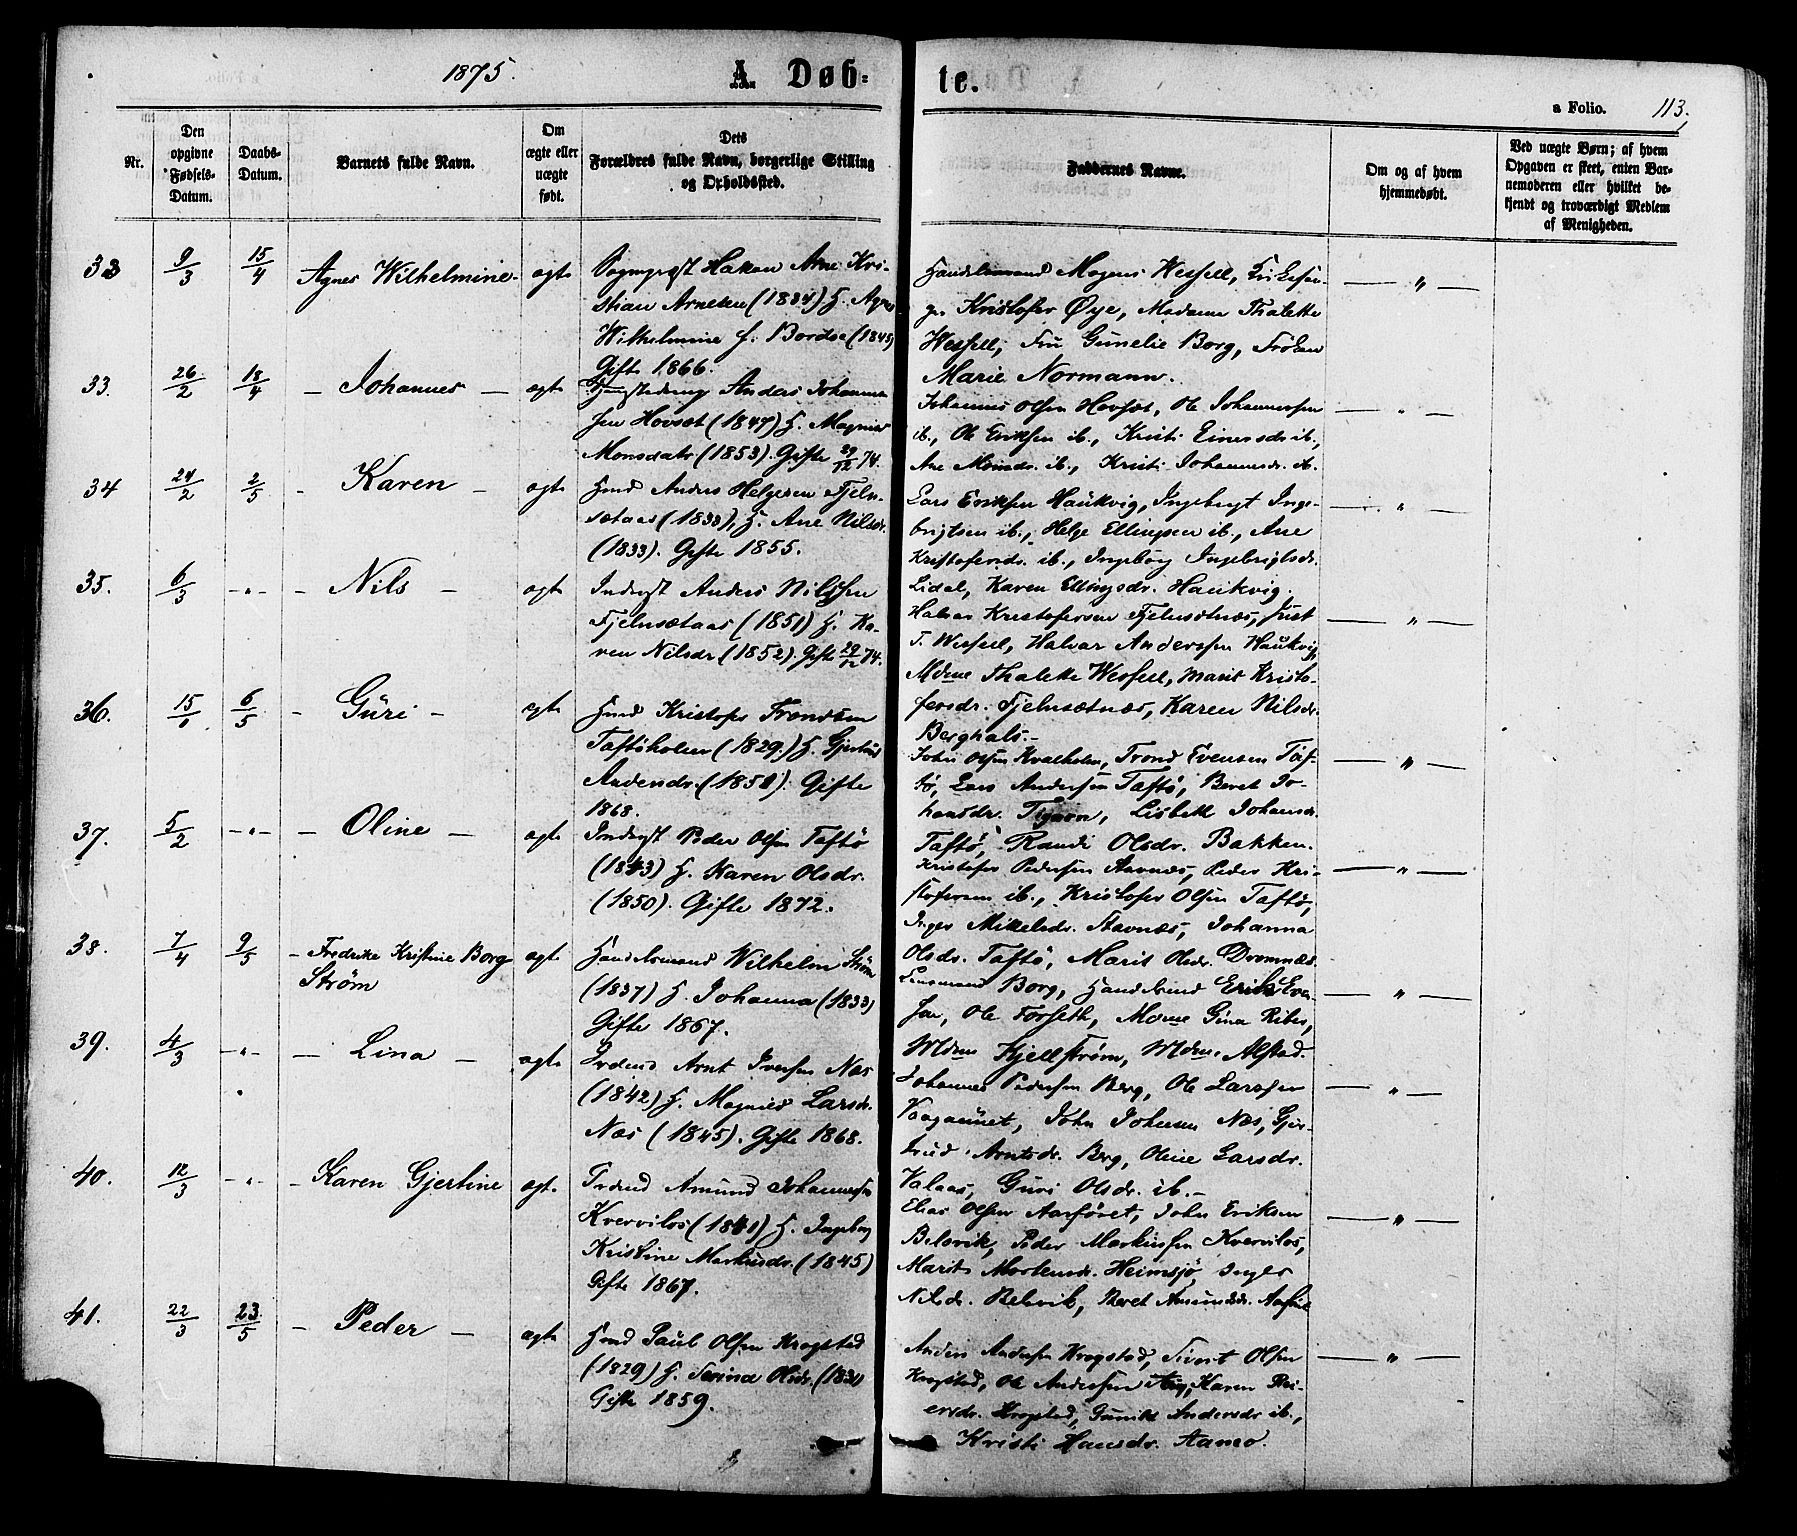 1875.
A. Døb-
te.
a Folio. 113.
Nr.
Den opgivne Fødsels-Datum.
Daabs-Datum.
Barnets fulde Navn.
Om ægte eller uægte født.
Dets Forældres fulde Navn, borgerlige Stilling og Opholdssted.
Faddernes Navne.
Om og af hvem hjemmedøbt.
Ved uægte Børn; af hvem Opgaven er skeet, enten Barnemoderen eller hvilket bekjendt og troværdigt Medlem af Menigheden.
33 9/3 15/4 Agnes Wilhelmine ægte
Sognepræst Hakon Arne Kri-
stian Arnesen (1834) H. Agnes
Wilhelmine f. Bordoe (1845)
Gifte 1866.
Handelsmand Mogens Wessell,
Kristofer Øye, Madame Thalette
Wessell, Fru Gunelie Borg, Frøken
Marie Normann.
33. 26/2 18/4 Johannes ægte
Anders Johannes-
sen Hovset (1847) H. Magnild
Monsdatr (1853). Gifte 29/12 74.
Johannes Olsen Hovset, Ole Johannessen
ib., Ole Eriksen ib., Kristi Einersdr ib.,
Ane Monsdr. ib., Kristi Johannesdr. ib.
34 24/2 2/5 Karen ægte
Gmd Anders Helgesen Fjeln-
sætaas (1833), H. Ane Nilsdr.
(1833). Gifte 1855.
Lars Eriksen Haukvig, Ingebrigt Inge-
brigtsen ib., Helge Ellingsen ib., Ane
Kristofersdr. ib., Ingeborg Ingebrigtsdr.
Lidal, Karen Ellingsdr. Haukvig.
35. 6/3 -"- Nils ægte
Inderst Anders Nilssen
Fjelnsætaas (1851) H. Ka-
ren Nilsdr (1852). Gifte 29/12 74.
Halvar Kristofersen Fjelnsætnæs, Just
T. Wessell, Halvar Anderssen Haukvig,
Mdme Thalette Wessell, Marit Kristo-
fersdr. Fjelnsætnæs, Karen Nilsdr.
Berghals.-
36. 15/1 6/5 Guri ægte
Gmd Kristofer Trondsen
Taftøholen (1829.) H. Gjertrud
Andersdr. (1850). Gifte
1868.
John Olsen Kvalholm, Trond Evensen Taf-
tø, Lars Andersen Taftø, Beret Jo-
hansdr. Lisbeth Johansdr.
Taftø, Randi Olsdr. Bakken.
37. 5/2 -"- Oline ægte
Inderst Peder Olsen Taftø
(1843) H. Karen Olsdr.
(1850). Gifte 1872.
Kristofer Pedersen Stavnæs, Peder Kri-
stofersen ib., Kristofer Olsen Taftø,
Inger Mikelsdr. Stavnæs, Johanna
Olsdr. Taftø, Marit Olsdr. Dromnæs.
38. 7/4 9/5 Fredrikke Kristine Borg
Strøm ægte
Handelsmand Wilhelm Strøm
(1837) H. Johanna (1833)
Gifte 1867.
Lensmand Borg, Handelsmd Erik Even-
sen, Ole Forseth, Mdme Gina Ribes,
Mdme Kjellstrøm, Mdme Alstad.
39. 4/3 -"- Lina ægte
Arnt Iversen Næs
(1842) H. Magnild Larsdr.
Næs (1845). Gifte 1868.
Johannes Pedersen Berg, Ole Larssen
Vaagaunet, John Johnsen Næs, Gjer-
trud Arntsdr. Berg, Oline Larsdr.
Valaas, Guri Olsdr. ib.-
40. 12/3 -"- Karen Gjertine ægte.
Amund Johannessen
Kvervilos (1841) H. Ingeborg
Kristine Markusdr. (1845)
Gifte 1867.
Elias Olsen Aasføret, John Eriksen
Belsvik, Peder Markussen Kvervilos,
Marit Mortensdr. Heimsjø, Inger
Nilsdr. Belsvik, Beret Amundsdr.
41. 22/3 23/5 Peder ægte
Gmd Paul Olsen Krogstad
(1829) H. Serina Olsdr. (1831)
Gifte 1859.
Anders Andersen Krogstad, Sivert Olsen
Krogstad, Ole Andersen Karen Pe-
dersdr. Krogstad, Gunild Andersdr ib.,
Kristi Hansdr. Aanes.